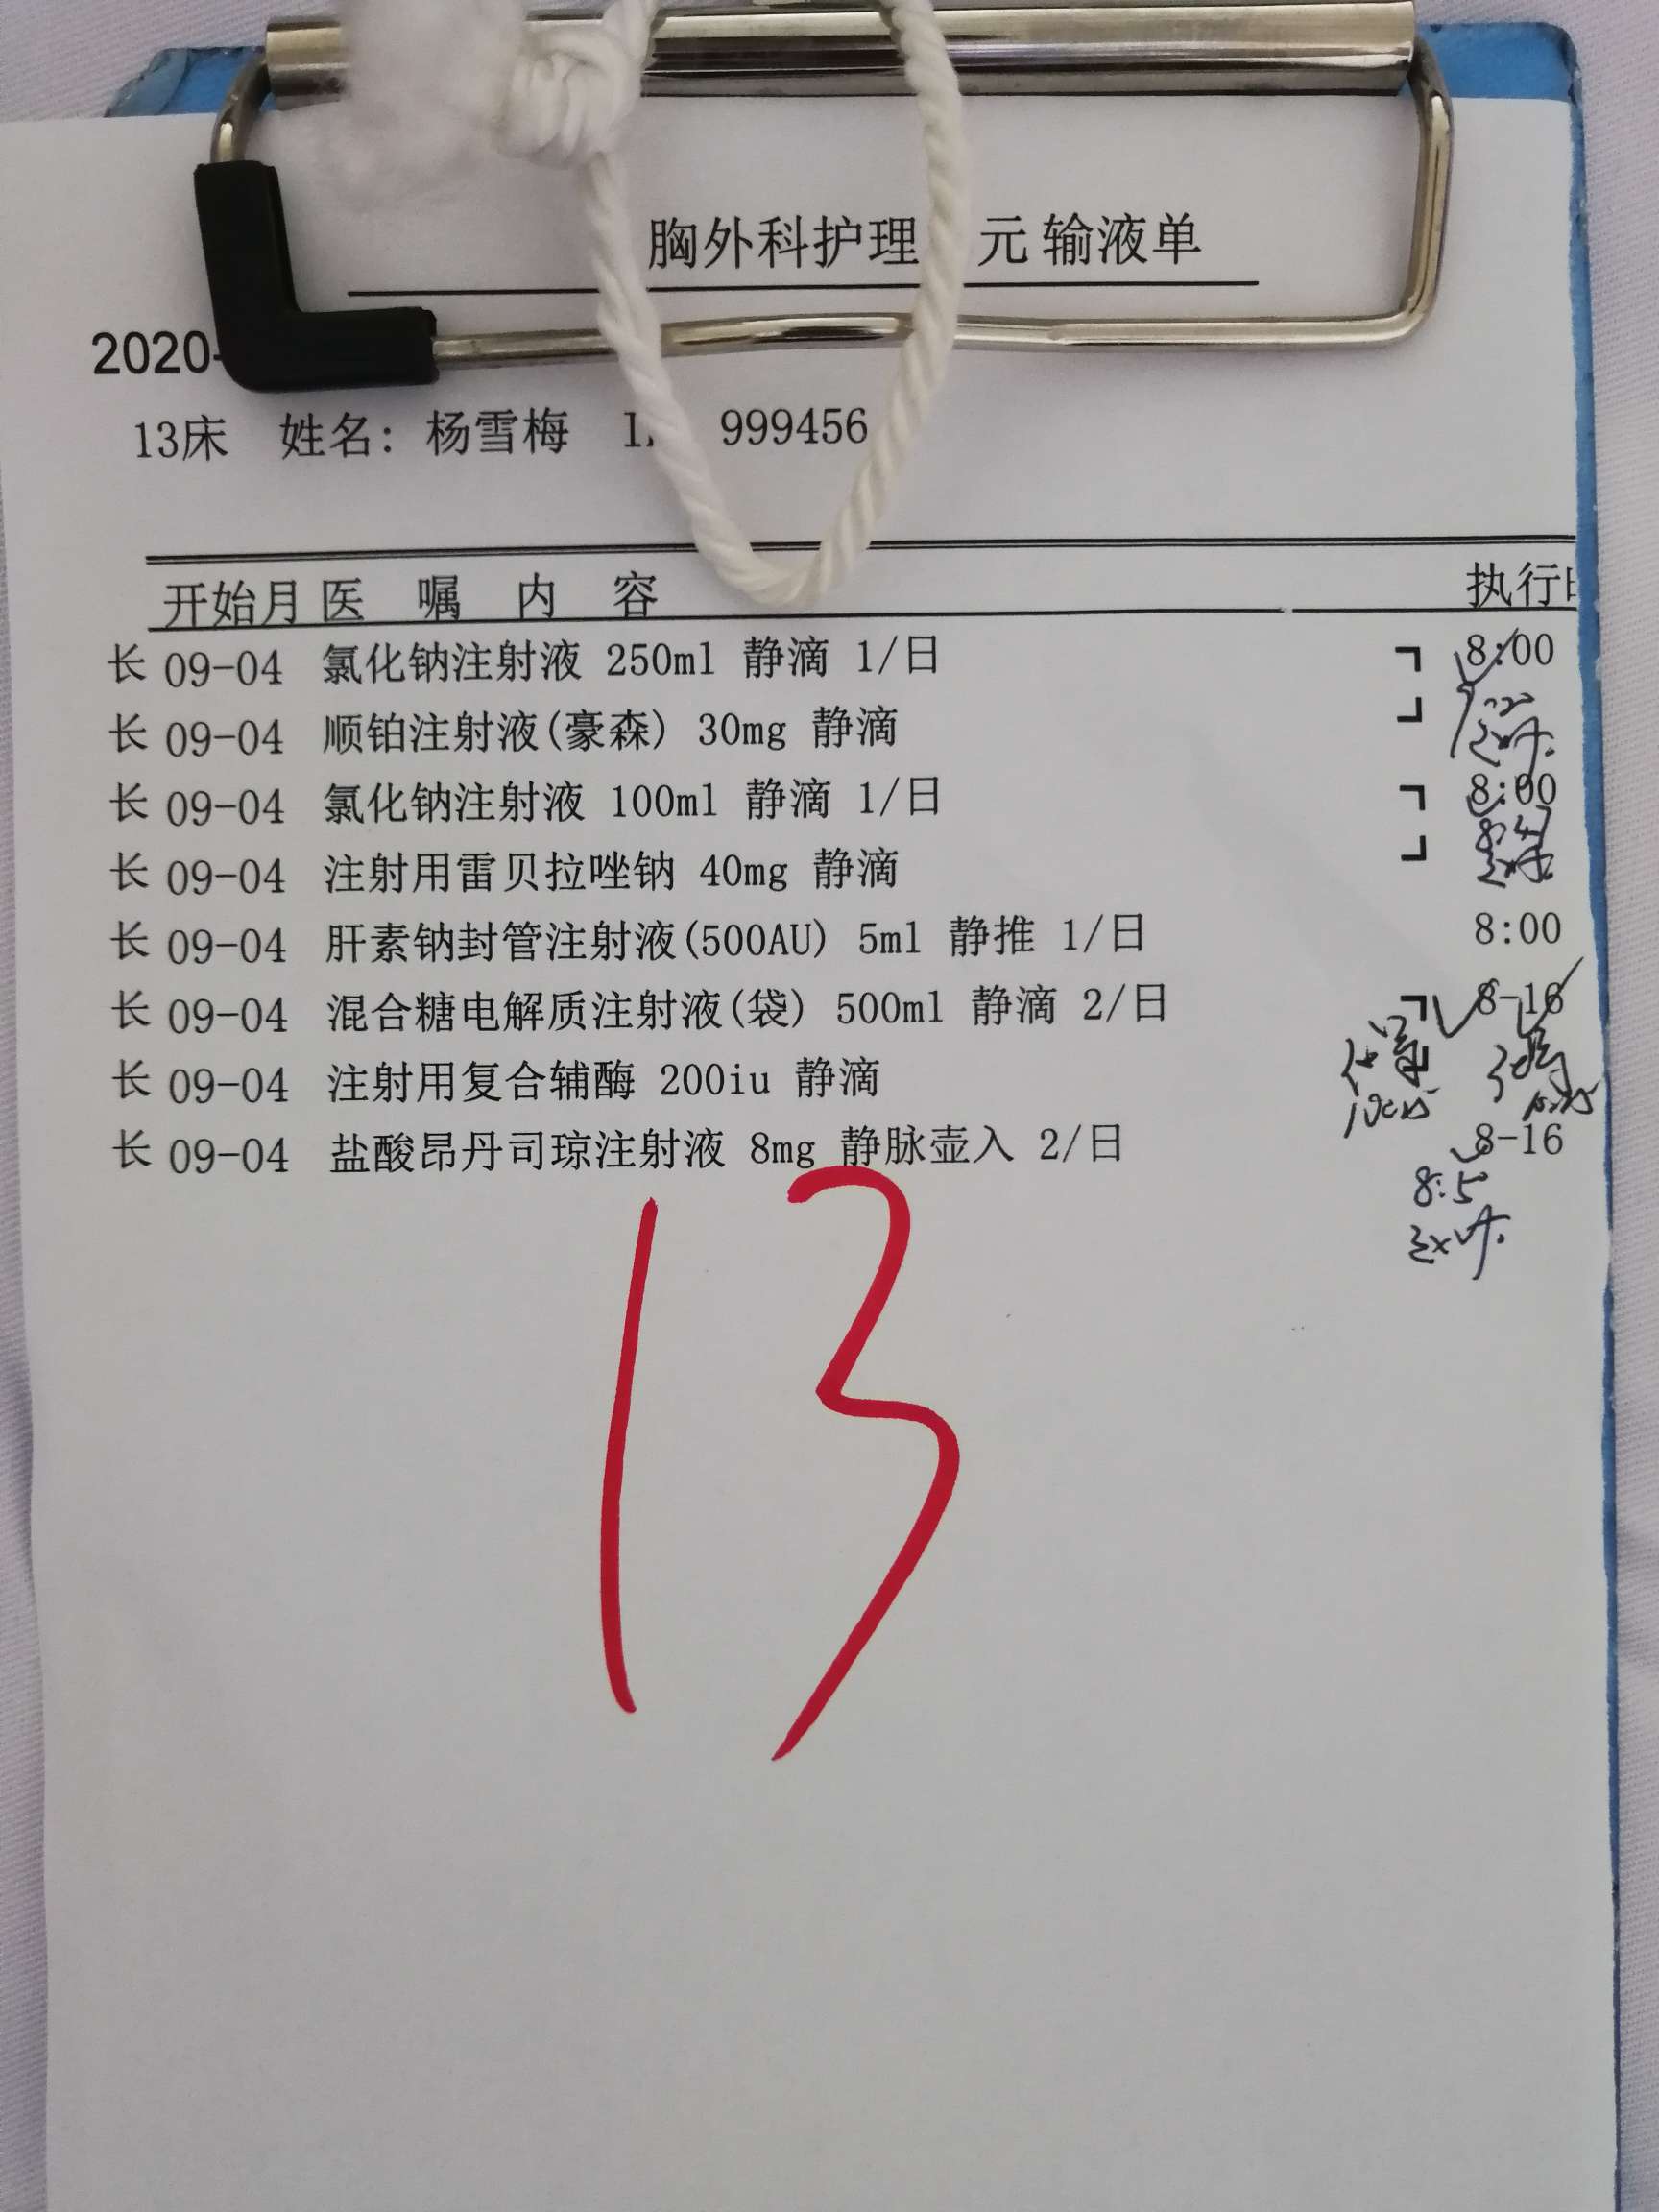 胸外科护理 元 输液单
2020-
13床 姓名: 杨雪梅 999456
开始月 医 嘱 内 容 执行
长 09-04 氯化钠注射液 250ml 静滴 1/日 8:00
长 09-04 顺铂注射液(豪森) 30mg 静滴
长 09-04 氯化钠注射液 100ml 静滴 1/日 8:00
长 09-04 注射用雷贝拉唑钠 40mg 静滴
长 09-04 肝素钠封管注射液(500AU) 5ml 静推 1/日 8:00
长 09-04 混合糖电解质注射液(袋) 500ml 静滴 2/日 8-16
长 09-04 注射用复合辅酶 200iu 静滴
长 09-04 盐酸昂丹司琼注射液 8mg 静脉壶入 2/日 8-16
13